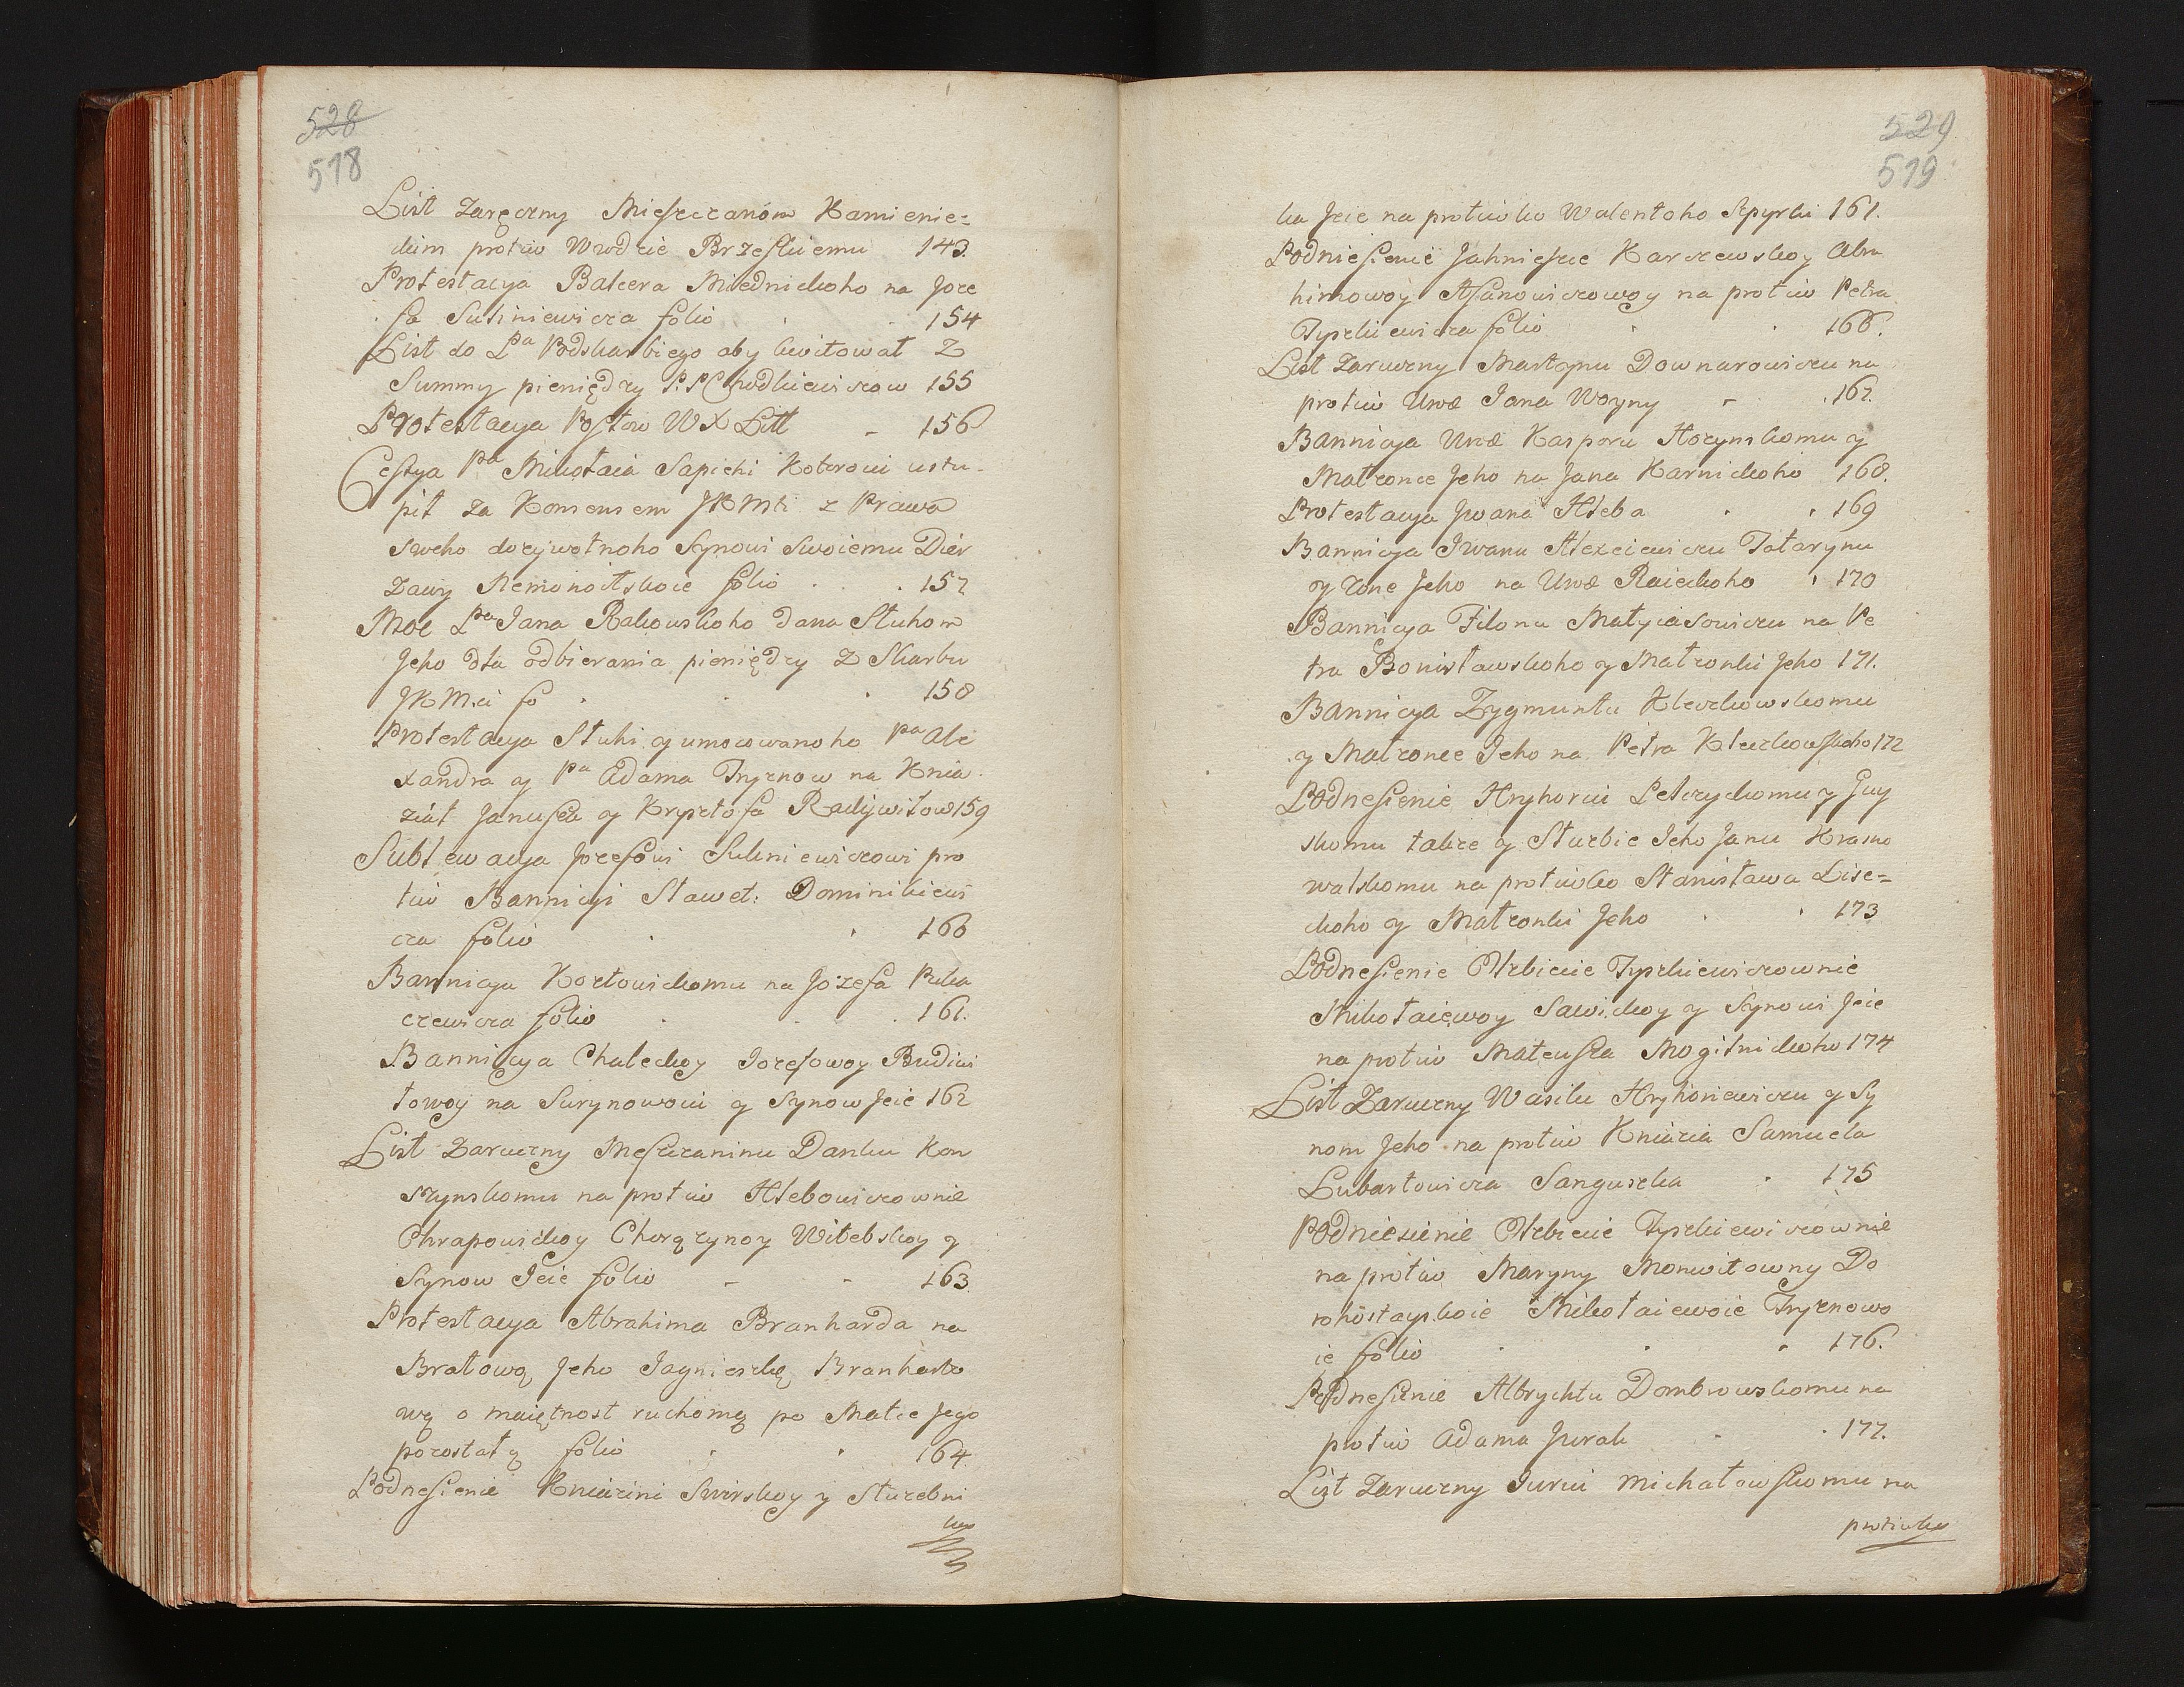 528
518
List Zaręczny Mieszczanóm Kamienie=
ckim protiw Wwdzie Brzeskiemu 143.
Protestacya Balcera Miednickoho na Joze
fa Suliniewicza folio 154
List do Pa Podskarbiego aby kwitował Z
Summy pieniędzy P.P Chodkiewiczow 155
Protestacya Posłow WX Litt 156
Cessya Pa Mikołaia Sapiehi Kotoroui ustu-
pił za Konsensem JKMti z Prawa
sweho dożywotnoho Synowi Swoiemu Dier
żawy Remonoitskoie folio 157
Moc Pa Jana Rakowskoho dana Słuhom
Jeho dla odbierania pieniędzy Z Skarbu
JKM.ci fo 158
Protestacya Słuhi y umocowanoho Pa Ale
xandra y Pa Adama Tryznow na Knia
ziat Janusza y Krysztofa Radywiłow 159
Sublewacya Jozefowi Suliniewiczowi pro
tiw Bannicyi Sławet: Dominikiewi
cza folio 160
Bannicya Kozłowickomu na Józefa Puka
czewicza folio 161.
Bannicya Chaleckoy Jozefowoy Budiwi
łowoy na Surynowoui y Synow Jeie 162
List Zaruczny Meszczaninu Danku Kon
szynskomu na protiw Hlebowiczownie
Chrapowickoy Chorążynoy Witebskoy y
Synow Jeie folio 163.
Protestacya Abrahima Branharda na
Bratową Jeho Jagnieszkę Branhardo
wą o maiętnost ruchomą po Matce Jego
pozostałą folio 164
Podnesienie Kniazini Swirskoy y Służebni
ku
529
519
ka Jeie na protiwko Walentoho Szpyrki 161.
Podniesienie Jahnieszce Karszewskoy Abra
himowoy Assanowiczowoy na protiw Petra
Tyszkiewicza folio 166.
List Zaruczny Martynu Downarowiczu na
protiw Urod Jana Woyny 167.
Bannicya Urod Kasporu Horynskomu y
Małżonce Jeho na Jana Karnickoho 168.
Protestacya Jwana Hleba 169
Bannicya Iwanu Alexeiewiczu Tatarynu
y żone Jeho na Urod Raieckoho 170
Bannicya Filonu Matyiasowiczu na Pe
tra Bonisławskoho y Małżonki Jeho 171.
Bannicya Zygmuntu Kleczkowskomu
y Małżonce Jeho na Petra Kleczkowskoho 172
Podnesienie Hryhorui Petczyckomu y Juy
skomu także y Służbie Jeho Janu Krasno
walskomu na protiwko Stanisława Lise=
ckoho y Małżonki Jeho 173
Podnesienie Olżbiecie Tyszkiewiczownie
Mikołaiewoy Sawickoy y Synowi Jeie
na protiw Mateusza Mogilnickoho 174
List Zaruczny Wasilu Hryhoriewiczu y Sy
nom Jeho na protiw Kniazia Samuela
Lubartowicza Sanguszka 175
Podniesienie Olżbiecie Tyszkiewiczownie
na protiw Maryny Monwitowny Do
rohostayskoie Mikołaiewoie Tryznowo
ie folio 176.
Podnesienie Albrychtu Dombrowskomu na
protiw Adama Jurah 177.
List Zaruczny Jurui Michałowskomu na
protiwko